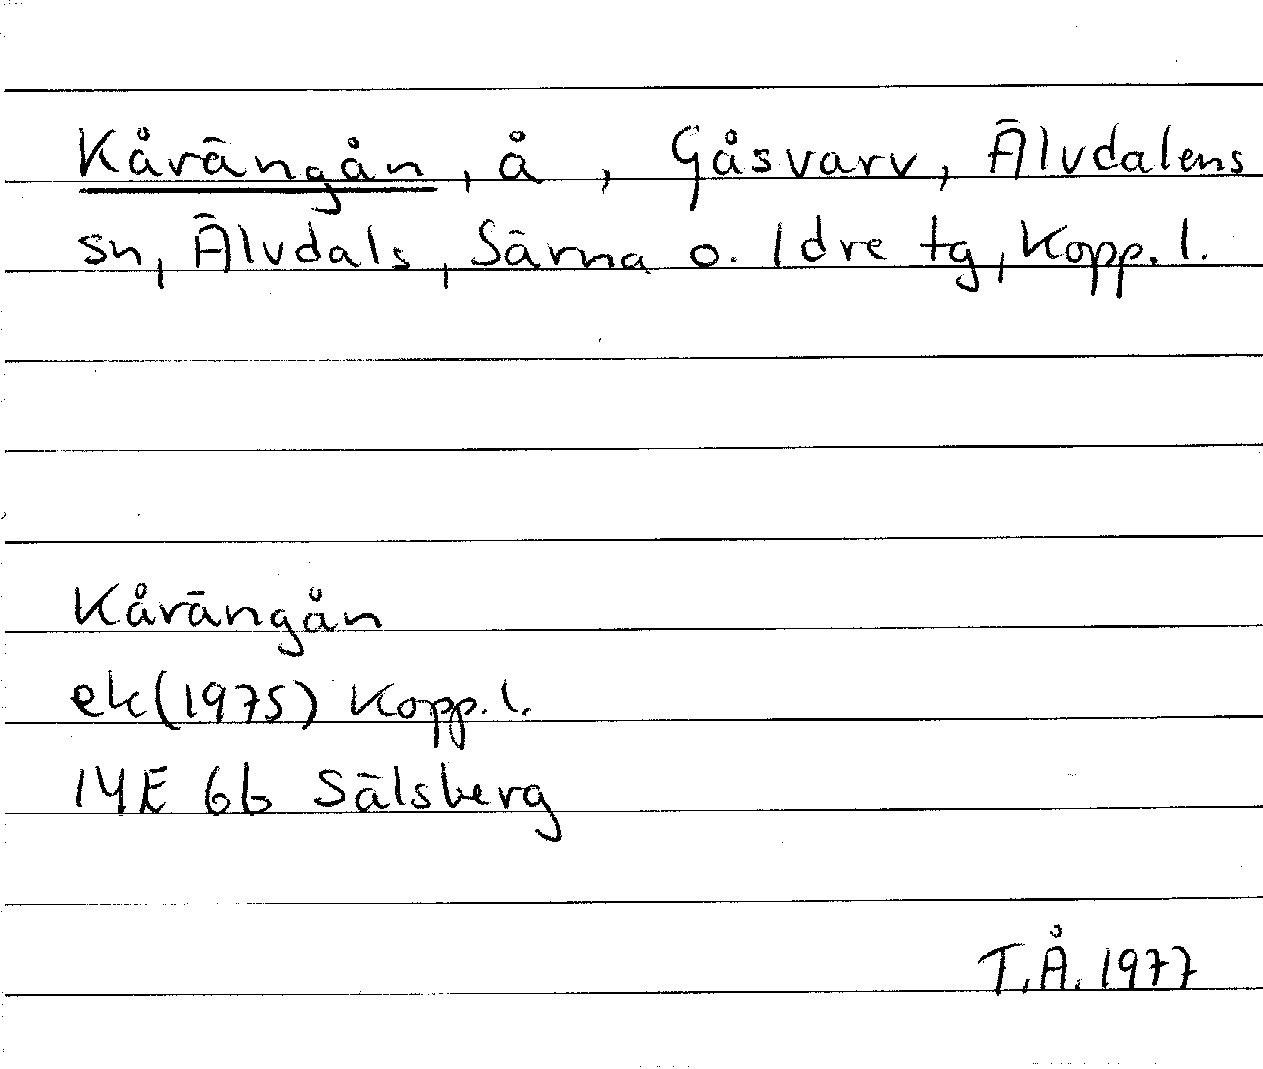 Kårängån, å, Gåsvarv, Älvdalens
sn, Älvdals, Särna o. Idre tg, Kopp. l.
Kårängån
ek (1975) Kopp. l.
14E 6b Sälsberg
T.Å. 1977